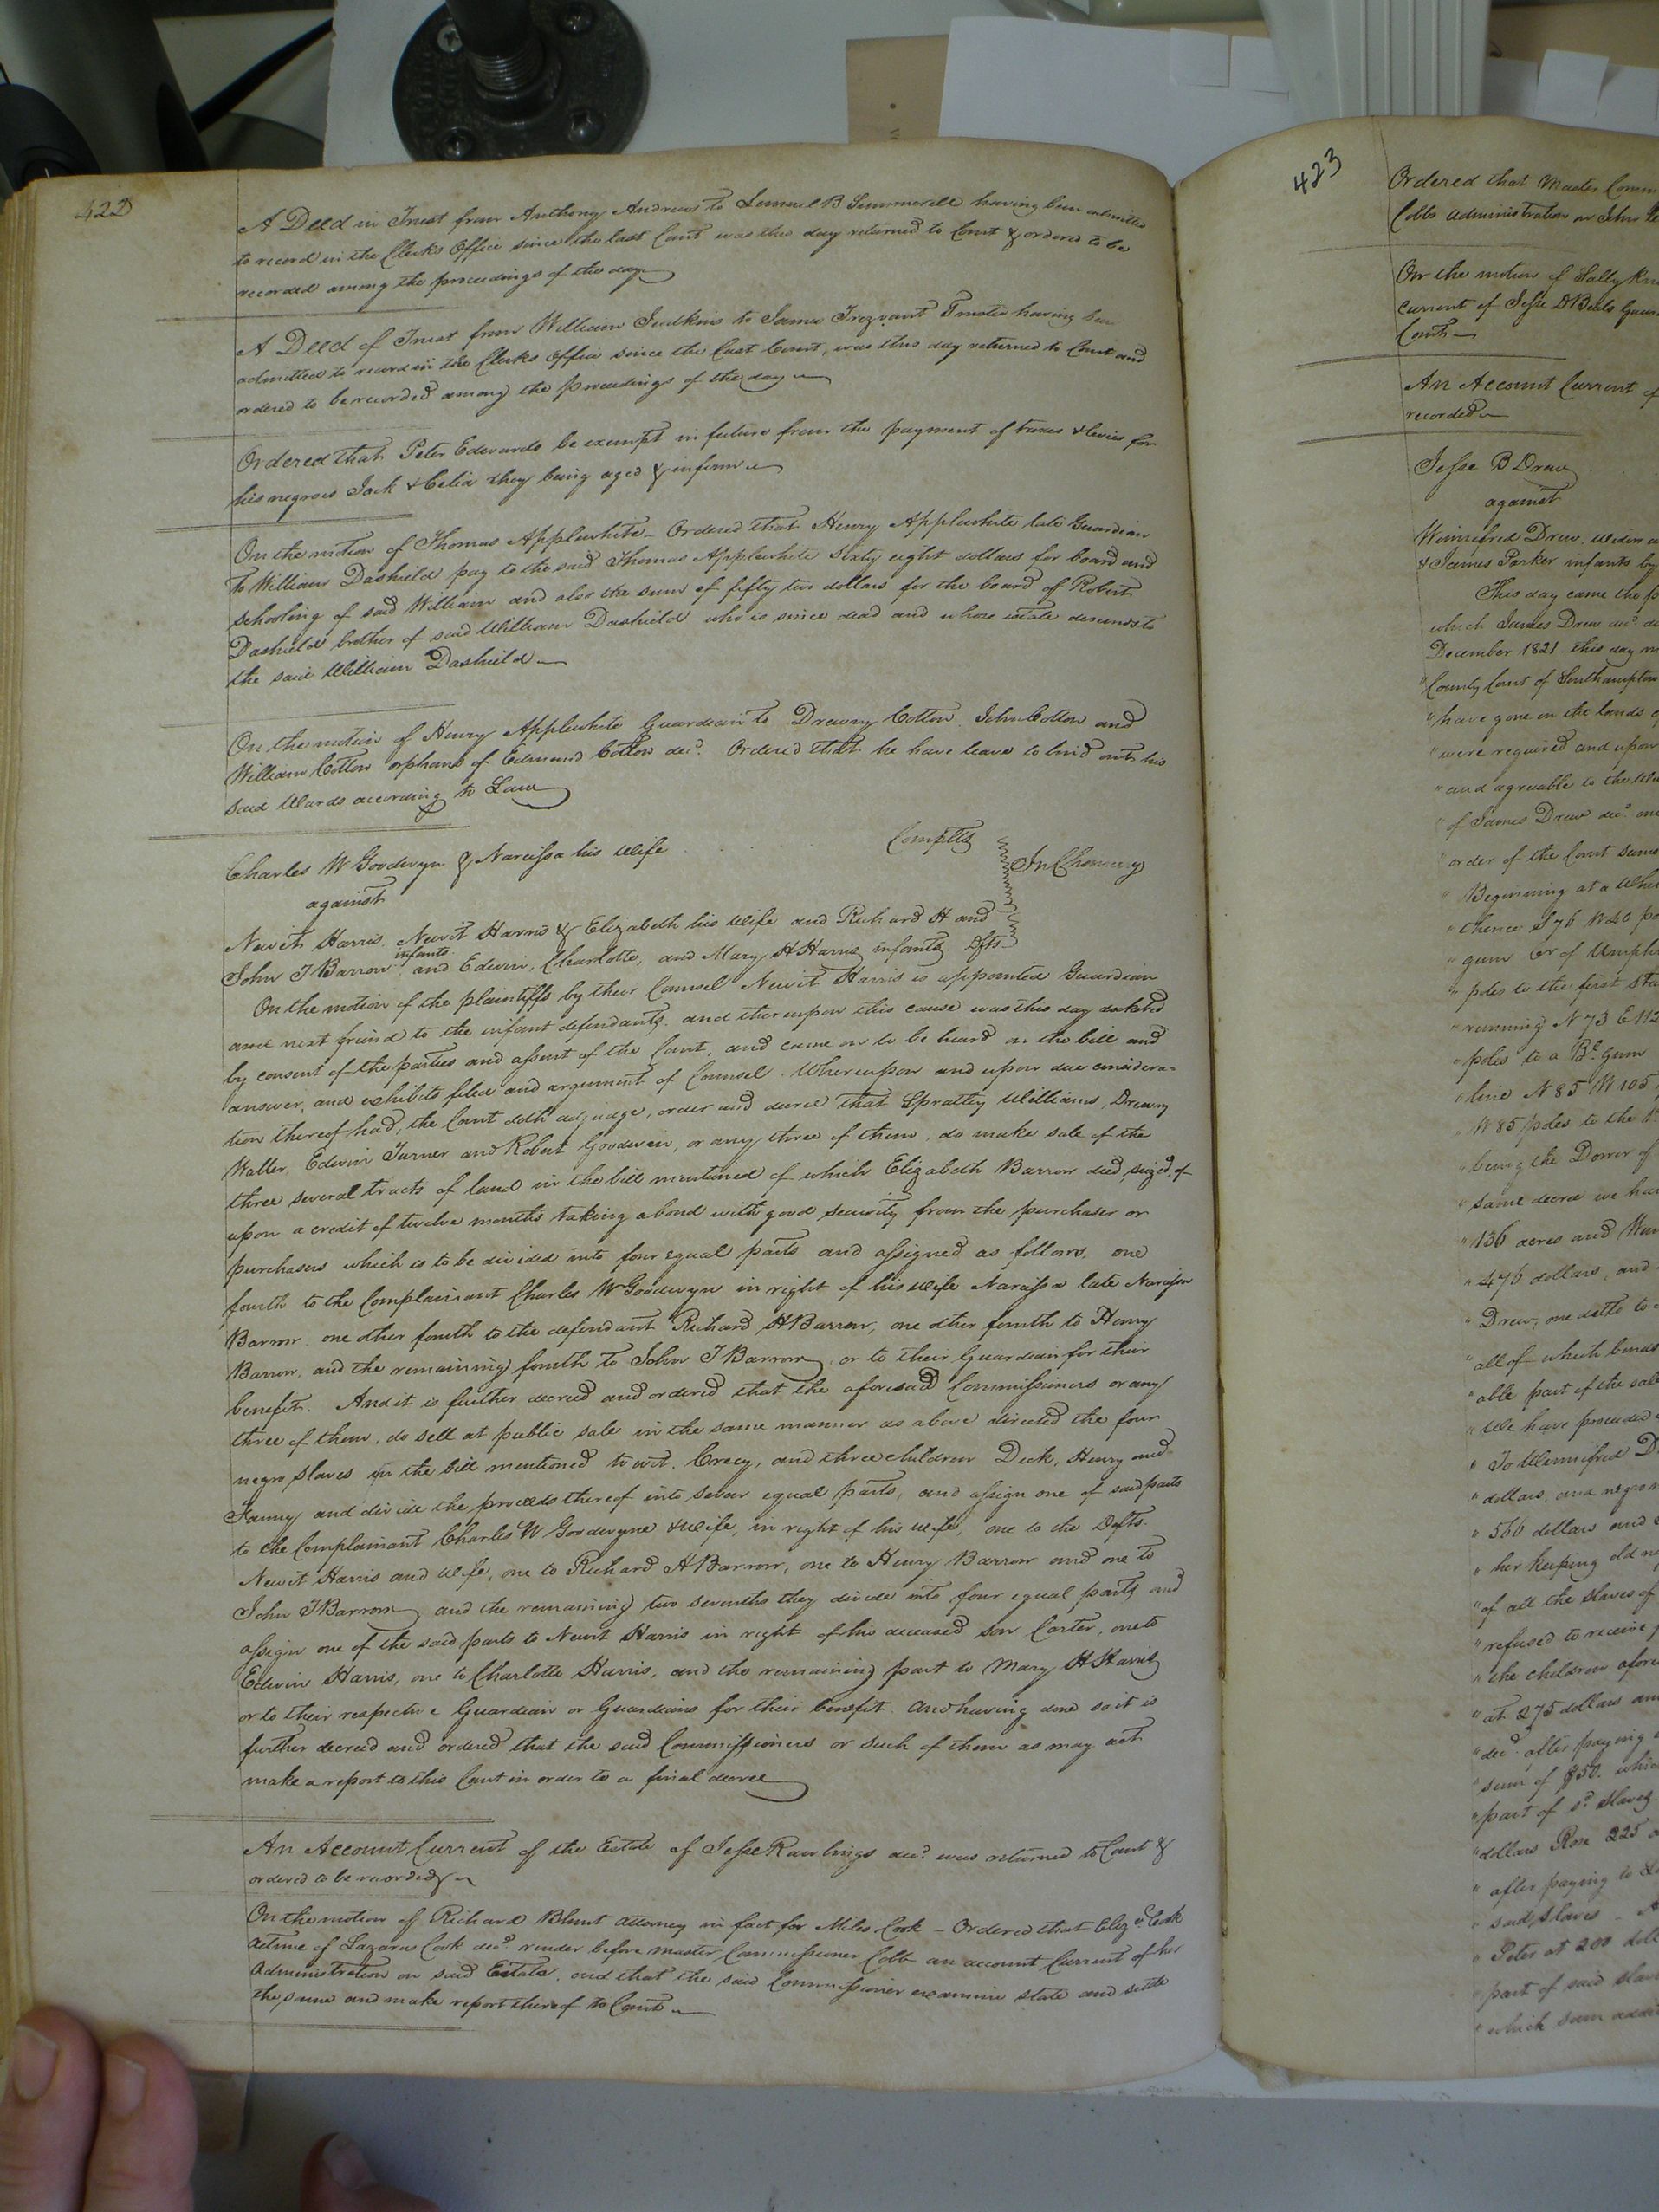 422
A Deed in Trust from Anthony Andrews to Lemuel B Summerell having been admitted
to record in the Clerks Office since the last Court was this day returned to Court & ordered to be
recorded among the proceedings of the day
A Deed of Trust from William Judkins to James Trezvant Trustee having been
admitted to record in the Clerks Office since the last Court, was this day returned to Court and
ordered to be recorded among the proceedings of the day
Ordered that Peter Edwards be exempt in future from the payment of taxes & levies for
his negroes Jack & Celia they being aged & infirm
On the motion of Thomas Applewhite - Ordered that Henry Applewhite late Guardian
to William Dashield pay to the said Thomas Applewhite sixty eight dollars for board and
schooling of said William and also the sum of fifty two dollars for the board of Robert
Dashield brother of said William Dashield who is since dead and whose estate descends to
the said William Dashield
On the motion of Henry Applewhite Guardian to Drewry Cotton, John Cotton and
William Cotton orphans of Edmund Cotton decd. Ordered that he have leave to bind out his
said Wards according to Law
Charles W Goodwyn & Narcissa his wife Complts
In Chancery
against
Newit Harris, Newit Harris & Elizabeth his wife and Richard H and
infants
John T Barrow, and Edwin, Charlotte, and Mary H Harris, infants. Dfts
On the motion of the plaintiffs by their Counsel Newit Harris is appointed Guardian
and next friend to the infant defendants, and thereupon this cause was this day docketed
by consent of the parties and assent of the Court, and came on to be heard on the bill and
answer, and exhibits filed and argument of Counsel. Whereupon and upon due considera=
tion thereof had, the Court doth adjudge, order and decree that Spratley Williams, Drewry
Waller, Edwin Turner and Robert Goodwin, or any three of them, do make sale of the
three several tracts of land in the bill mentioned of which Elizabeth Barrow died, seized, of
upon a credit of twelve months taking a bond with good security from the purchaser or
purchasers which is to be divided into four equal parts and assigned as follows, one
fourth to the Complainant Charles W Goodwyn in right of his wife Narcissa late Narcissa
Barrow, one other fourth to the defendant Richard H Barrow, one other fourth to Henry
Barrow, and the remaining fourth to John T Barrow, or to their Guardian for their
benefit. And it is further decreed and ordered that the aforesaid Commissioners or any
three of them, do sell at public sale in the same manner as above directed the four
negro slaves in the bill mentioned to wit, Crecy, and three children Dick, Henry and
Fanny and divide the proceeds thereof into seven equal parts, and assign one of said parts
to the Complainant Charles W Goodwyne & wife, in right of his wife, one to the Defts.
Newit Harris and wife, one to Richard H Barrow, one to Henry Barrow and one to
John T Barrow and the remaining two sevenths they divide into four equal parts and
assign one of the said parts to Newit Harris in right of his deceased son Carter, one to
Edwin Harris, one to Charlotte Harris, and the remaining part to Mary H Harris
or to their respective Guardian or Guardians for their benefit. And having done so it is
further decreed and ordered that the said Commissioners or such of them as may act
make a report to this Court in order to a final decree
An Account Current of the Estate of Jesse Rawlings decd. was returned to Court &
ordered to be recorded
On the motion of Richard Blunt Attorney in fact for Miles Cook - Ordered that Elizth. Cook
Admx of Lazarus Cook decd. render before Master Commissioner Cobb an account Current of her
Administration on said Estate, and that the said Commissioner examine state and settle
the same and make report thereof to Court
423
Ordered that Master Comm
Cobbs administration on John
On the motion of Sally
current of Jesse D Beals Guar
Court
An Account Current of
recorded
Jesse B Drew
against
Winnefred Drew, widow
& James Parker infants by
This day came the
which James Drew decd.
December 1821 this day
"County Court of Southampton
"have gone on the lands
"were required and upon
"and agreeable to the
"of James Drew decd.
"order of the Court
"Beginning at a
"thence S76 W40 po
"gum
"poles to the first
"running N73 E112
"poles to a Be. Gum
"line N85 W105
"W85 poles to the
"being the Dower of
"same decree we ha
"136 acres and
"476 dollars, and
"Drew, one ditto to
"all of which bonds
"able part of the sale
"We have proceeded
"To Winnifred D
"dollars, and negro
"560 dollars and
"her keeping old
"of all the slaves of
"refused to receive
"the children afore
"at 275 dollars an
"decd. after paying
"sum of $50. which
"part of sd. slaves
"dollars Rose 225
"after paying to
"said slaves
"Peter at 200 doll
"part of said slav
"which sum add